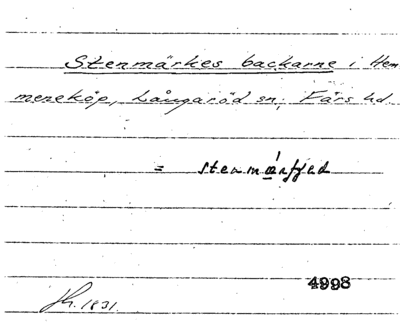 Stenmärkes backarne i Hem
meneköp, Långaröd sn, Färs hd.
= stenmærfjed
4998
Jh. 1831.